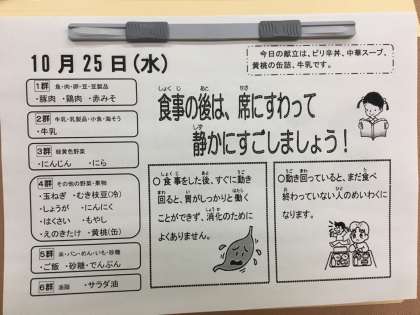 10月25日(水)
今日の献立は、ピリ辛丼、中華スープ、
黄桃の缶詰、牛乳です。
1群 魚・肉・卵・豆・豆製品
・豚肉 ・鶏肉 ・赤みそ
2群 牛乳・乳製品・小魚・海そう
・牛乳
3群 緑黄色野菜
・にんじん ・にら
4群 その他の野菜・果物
・玉ねぎ ・むき枝豆(冷)
・しょうが ・にんにく
・はくさい ・もやし
・えのきたけ ・黄桃(缶)
5群 米・パン・めん・いも・砂糖
・ご飯 ・砂糖 ・でんぷん
6群 油脂 ・サラダ油
しょくじ あと せき
食事の後は、席にすわって
しず
静かにすごしましょう!
しょくじ あと うご
○食事をした後、すぐに動き
まわ い はたら
回ると、胃がしっかりと働く
しょうか
ことができず、消化のために
よくありません。
うご まわ た
○動き回っていると、まだ食べ
お ひと
終わっていない人のめいわくに
なります。